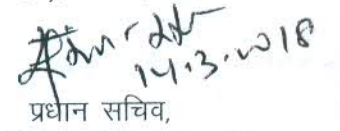 14.3.2018
प्रधान सचिव,